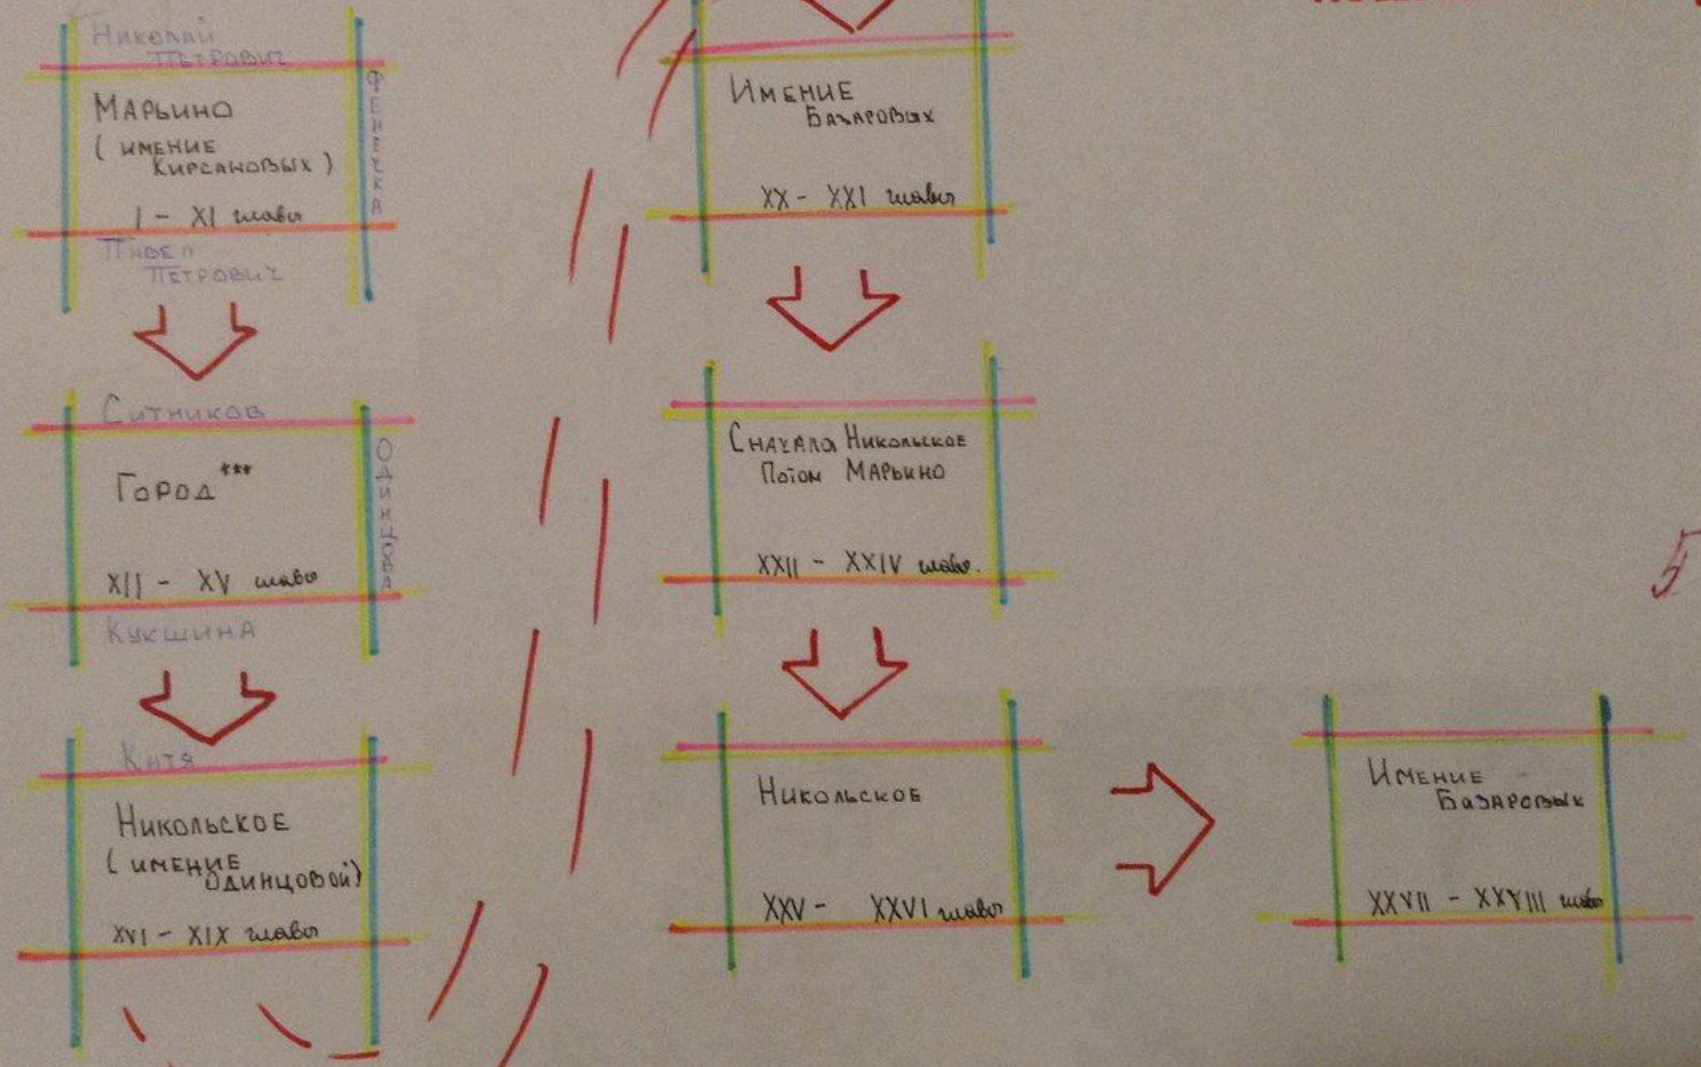 Николай
Петрович
Марьино
(имение
Кирсановых)
I - XI главы
Фенечка
Павел
Петрович
Ситников
Город ***
XII - XV главы
Одинцова
Кукшина
Катя
Никольское
(имение
Одинцовой)
XVI - XIX главы
Имение
Базаровых
XX - XXI главы
Сначала Никольское
Потом Марьино
XXII - XXIV главы.
Никольское
XXV - XXVI главы
Имение
Базаровых
XXVII - XXVIII главы